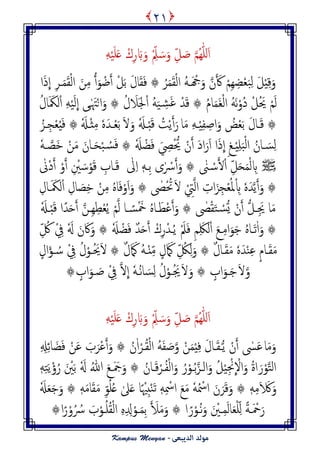 ﴿٢١﴾
اَللّٰهُمَّ صَلِّ وَسَلِّمْ وَبَارِكْ عَلَيْهِ
وَقِيْلَ لِبَعْضِهِمْ كَاَنَّ وَجْهَهُ الْقَمَرُ ۞ فَقَالَ بَلْ أَضْوَأُ مِنَ الْقَمَرِ إِذَا
لَمْ يَحُلْ دُوْنَهُ الْغَمَامُ ۞ قَدْ غَشِيَهُ الْجَلَالُ ۞ وَانْتَهَى إِلَيْهِ الْكَمَالُ
۞ قَالَ بَعْضُ وَاصِفِيْهِ مَا رَأَيْتُ قَبْلَهُ وَلَا بَعْدَهُ مِثْلَهُ ۞ فَيُعْجِزُ
لِسَانُ الْبَلِيْغِ إِذَا أَرَادَ أَنْ يُحْصِيَ فَضْلَهُ ۞ فَسُبْحَانَ مَنْ خَصَّهُ
ﷺ بِالْمَحَلِّ الْأَسْنٰى ۞ وَأَسْرٰى بِهِ إِلٰى قَابِ قَوْسَيْنِ أَوْ أَدْنٰى
۞ وَأَيَّدَهُ بِالْمُعْجِزَاتِ الَّتِيْ لَا تُحْصٰى ۞ وَأَوْفَاهُ مِنْ خِصَالِ الْكَمَالِ
مَا يَجِلُّ أَنْ يُسْتَقْصٰى ۞ وَأَعْطَاهُ خَمْسًا لَمْ يُعْطِهِنَّ أَحَدًا قَبْلَهُ
۞ وَأٰتَاهُ جَوَامِعَ الْكَلِمِ فَلَمْ يُدْرِكْ أَحَدٌ فَضْلَهُ ۞ وَكَانَ لَهُ فِيْ كُلِّ
مَقَامٍ عِنْدَهُ مَقَالٌ ۞ وَلِكُلِّ كَمَالٍ مِنْهُ كَمَالٌ ۞ لَا يَحُوْلُ فِيْ سُؤَالٍ
وَلَا جَوَابٍ ۞ وَلَا يَجُوْلُ لِسَانُهُ إِلَّا فِيْ صَوَابٍ۞
اَللّٰهُمَّ صَلِّ وَسَلِّمْ وَبَارِكْ عَلَيْهِ
وَمَا عَسٰى أَنْ يُقَالَ فِيْمَنْ وَصَفَهُ الْقُرْأٰنُ ۞ وَأَعْرَبَ عَنْ فَضَائِلِهِ
التَّوْرَاةُ وَالْإِنْجِيْلُ وَالزَّبُوْرُ وَالْفُرْقَانُ ۞ وَجَمَعَ اللهُ لَهُ بَيْنَ رُؤْيَتِهِ
وَكَلَامِهِ ۞ وَقَرَنَ اسْمَهُ مَعَ اسْمِهِ تَنْبِيْهًا عَلٰى عُلُوِّ مَقَامِهِ ۞ وَجَعَلَهُ
رَحْمَةً لِّلْعَالَمِيْنَ وَنُوْرًا ۞ وَمَلَأَ بِمَوْلِدِهِ الْقُلُوْبَ سُرُوْرًا۞
Kampus Menyan - مولد الديبعى